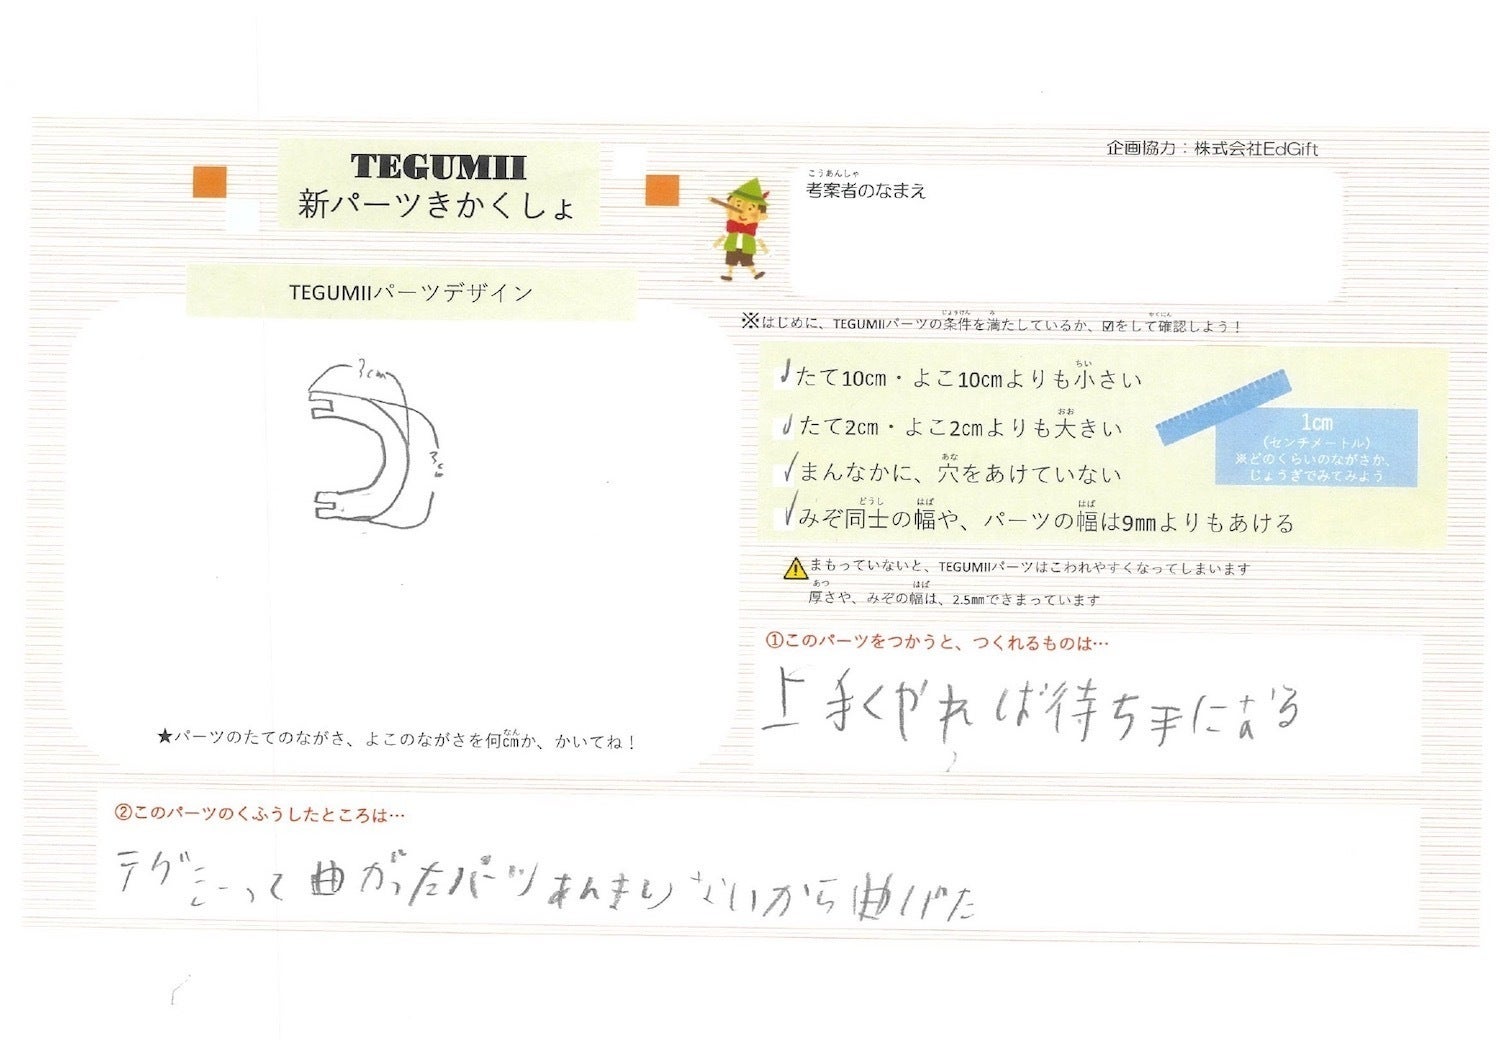 企画協力：株式会社EdGift
TEGUMII
新パーツきかくしょ
こうあんしゃ
考案者のなまえ
TEGUMIIパーツデザイン
3cm
3cm
★パーツのたてのながさ、よこのながさを何cmか、かいてね！
なん
じょうけん み かくにん
※はじめに、TEGUMIIパーツの条件を満たしているか、☑をして確認しよう！
ちい
✓たて10cm・よこ10cmよりも小さい
おお
✓たて2cm・よこ2cmよりも大きい
あな
✓まんなかに、穴をあけていない
どうし はば はば
✓みぞ同士の幅や、パーツの幅は9mmよりもあける
1cm
(センチメートル)
※どのくらいのながさか、
じょうぎでみてみよう
まもっていないと、TEGUMIIパーツはこわれやすくなってしまいます
あつ はば
厚さや、みぞの幅は、2.5mmできまっています
①このパーツをつかうと、つくれるものは…
上手くやれば待ち手になる
②このパーツのくふうしたところは…
テグミーって曲がったパーツあんまりないから曲げた